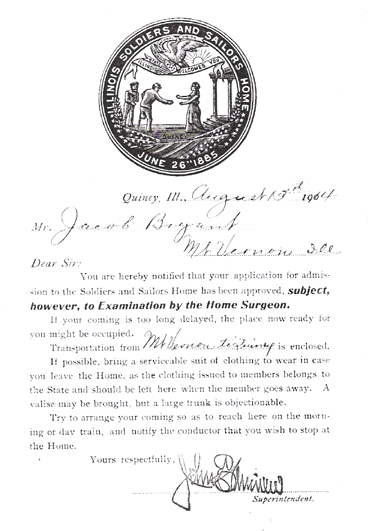 ILLINOIS SOLDIERS AND SAILORS HOME
ILLINOIS WELCOMES YOU
QUINCY
JUNE 26TH 1885
Quincy, Ill., August 15th 1904
Mr. Jacob Bryant
Mt Vernon Ill
Dear Sir:
You are hereby notified that your application for admis-
sion to the Soldiers and Sailors Home has been approved, subject,
however, to Examination by the Home Surgeon.
If your coming is too long delayed, the place now ready for
you might be occupied.
Transportation from Mt Vernon to Quincy is enclosed.
If possible, bring a serviceable suit of clothing to wear in case
you leave the Home, as the clothing issued to members belongs to
the State and should be left here when the member goes away. A
valise may be brought, but a large trunk is objectionable.
Try to arrange your coming so as to reach here on the morn-
ing or day train, and notify the conductor that you wish to stop at
the Home.
Yours respectfully,
John
Superintendent.